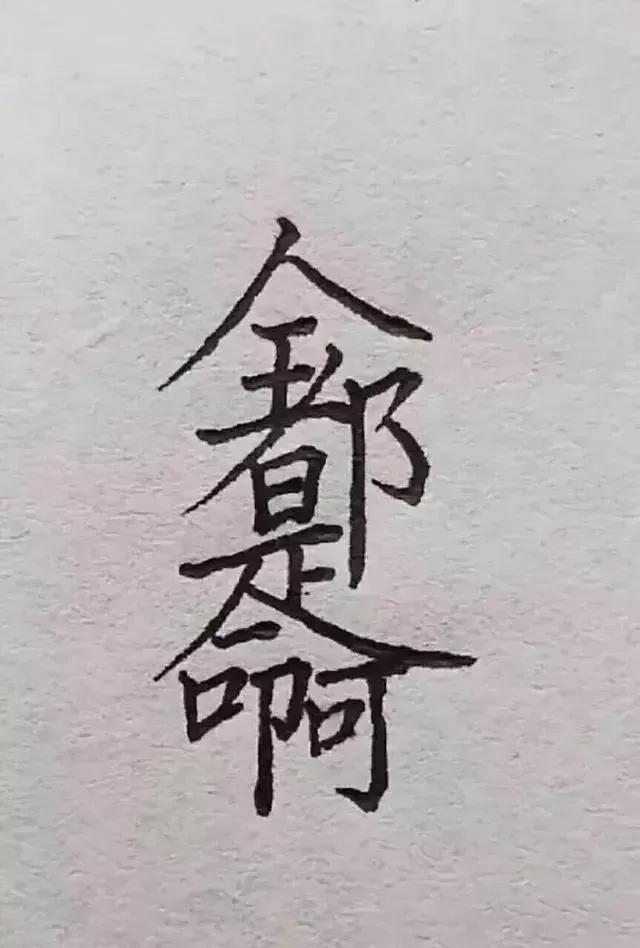 全都是命啊